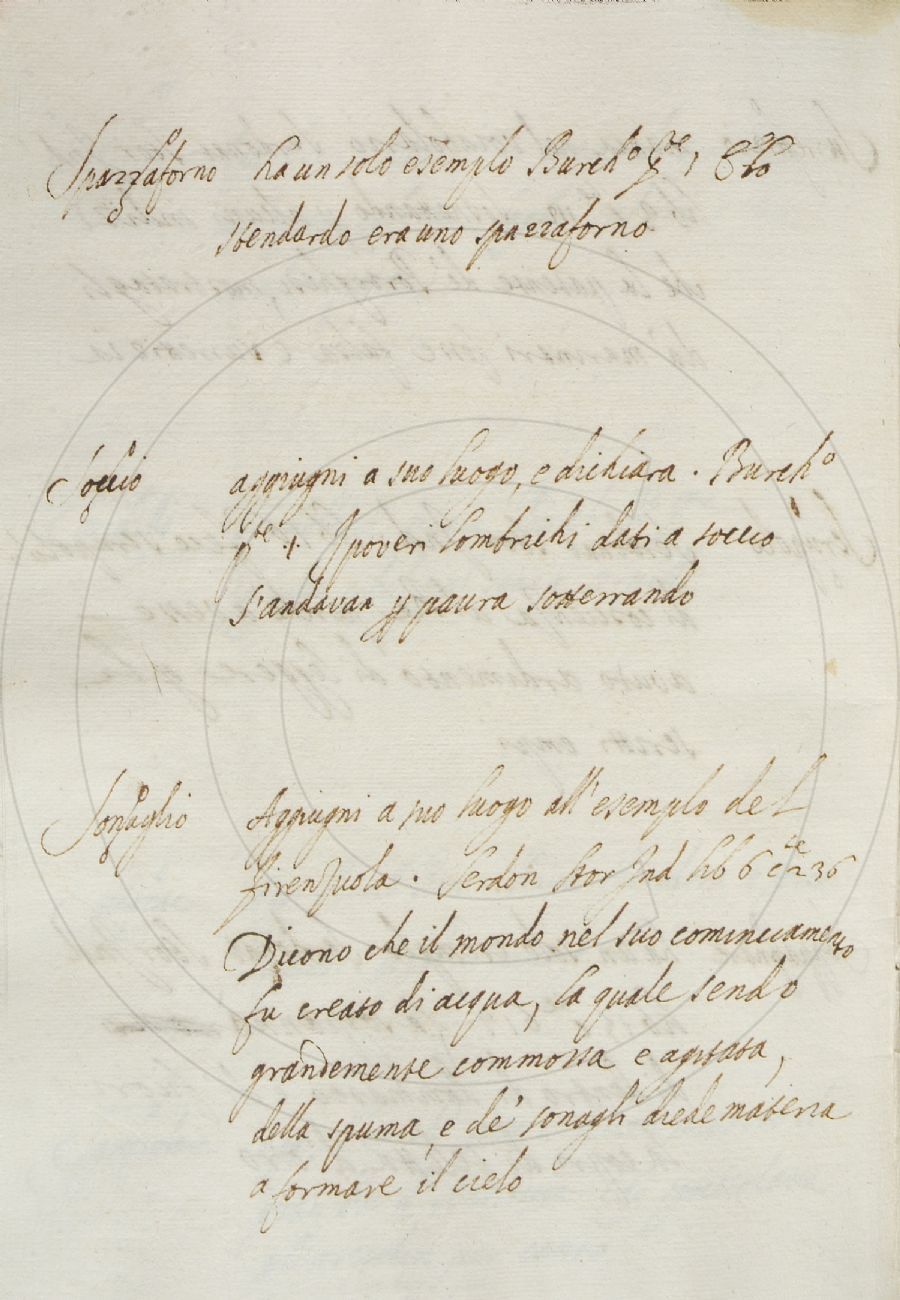 Spazzaforno ha un solo esemplo Burch.o p.te 1 E lo
stendardo era uno spazzaforno
Soccio aggiugni a suo luogo, e dichiara. Burch.o
p.te .1. I poveri lombrichi dati a soccio
S'andavan p paura sotterrando
Sonaglio Aggiugni a suo luogo all'esemplo del
firenzuola. Serdon Stor Ind lib 6 c.te 236
Dicono che il mondo nel suo cominciamento
fu creato di acqua, la quale sendo
grandemente commossa e agitata,
della spuma, e de' sonagli diede materia
a formare il cielo